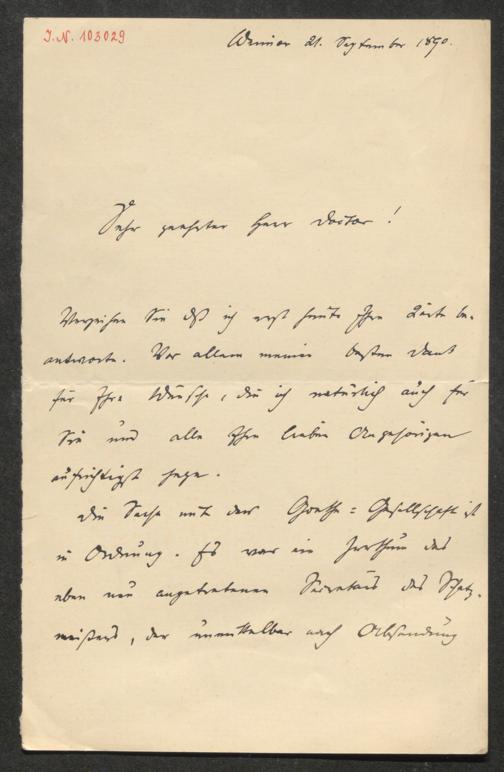 J.N. 103029
Weimar 21. September 1890.
Sehr geehrter Herr Doctor!
Verzeihen Sie daß ich erst heute Ihre Karte be-
antworte. Vor allem meinen besten Dank
für Ihre Wünsche, die ich natürlich auch für
Sie und alle Ihre lieben Angehörigen
aufrichtigst hege.
Die Sache mit der Goethe=Gesellschaft ist
in Ordnung. Es war ein Irrthum des
eben neu angetretenen Secretärs des Schatz-
meisters, der unmittelbar nach Absendung